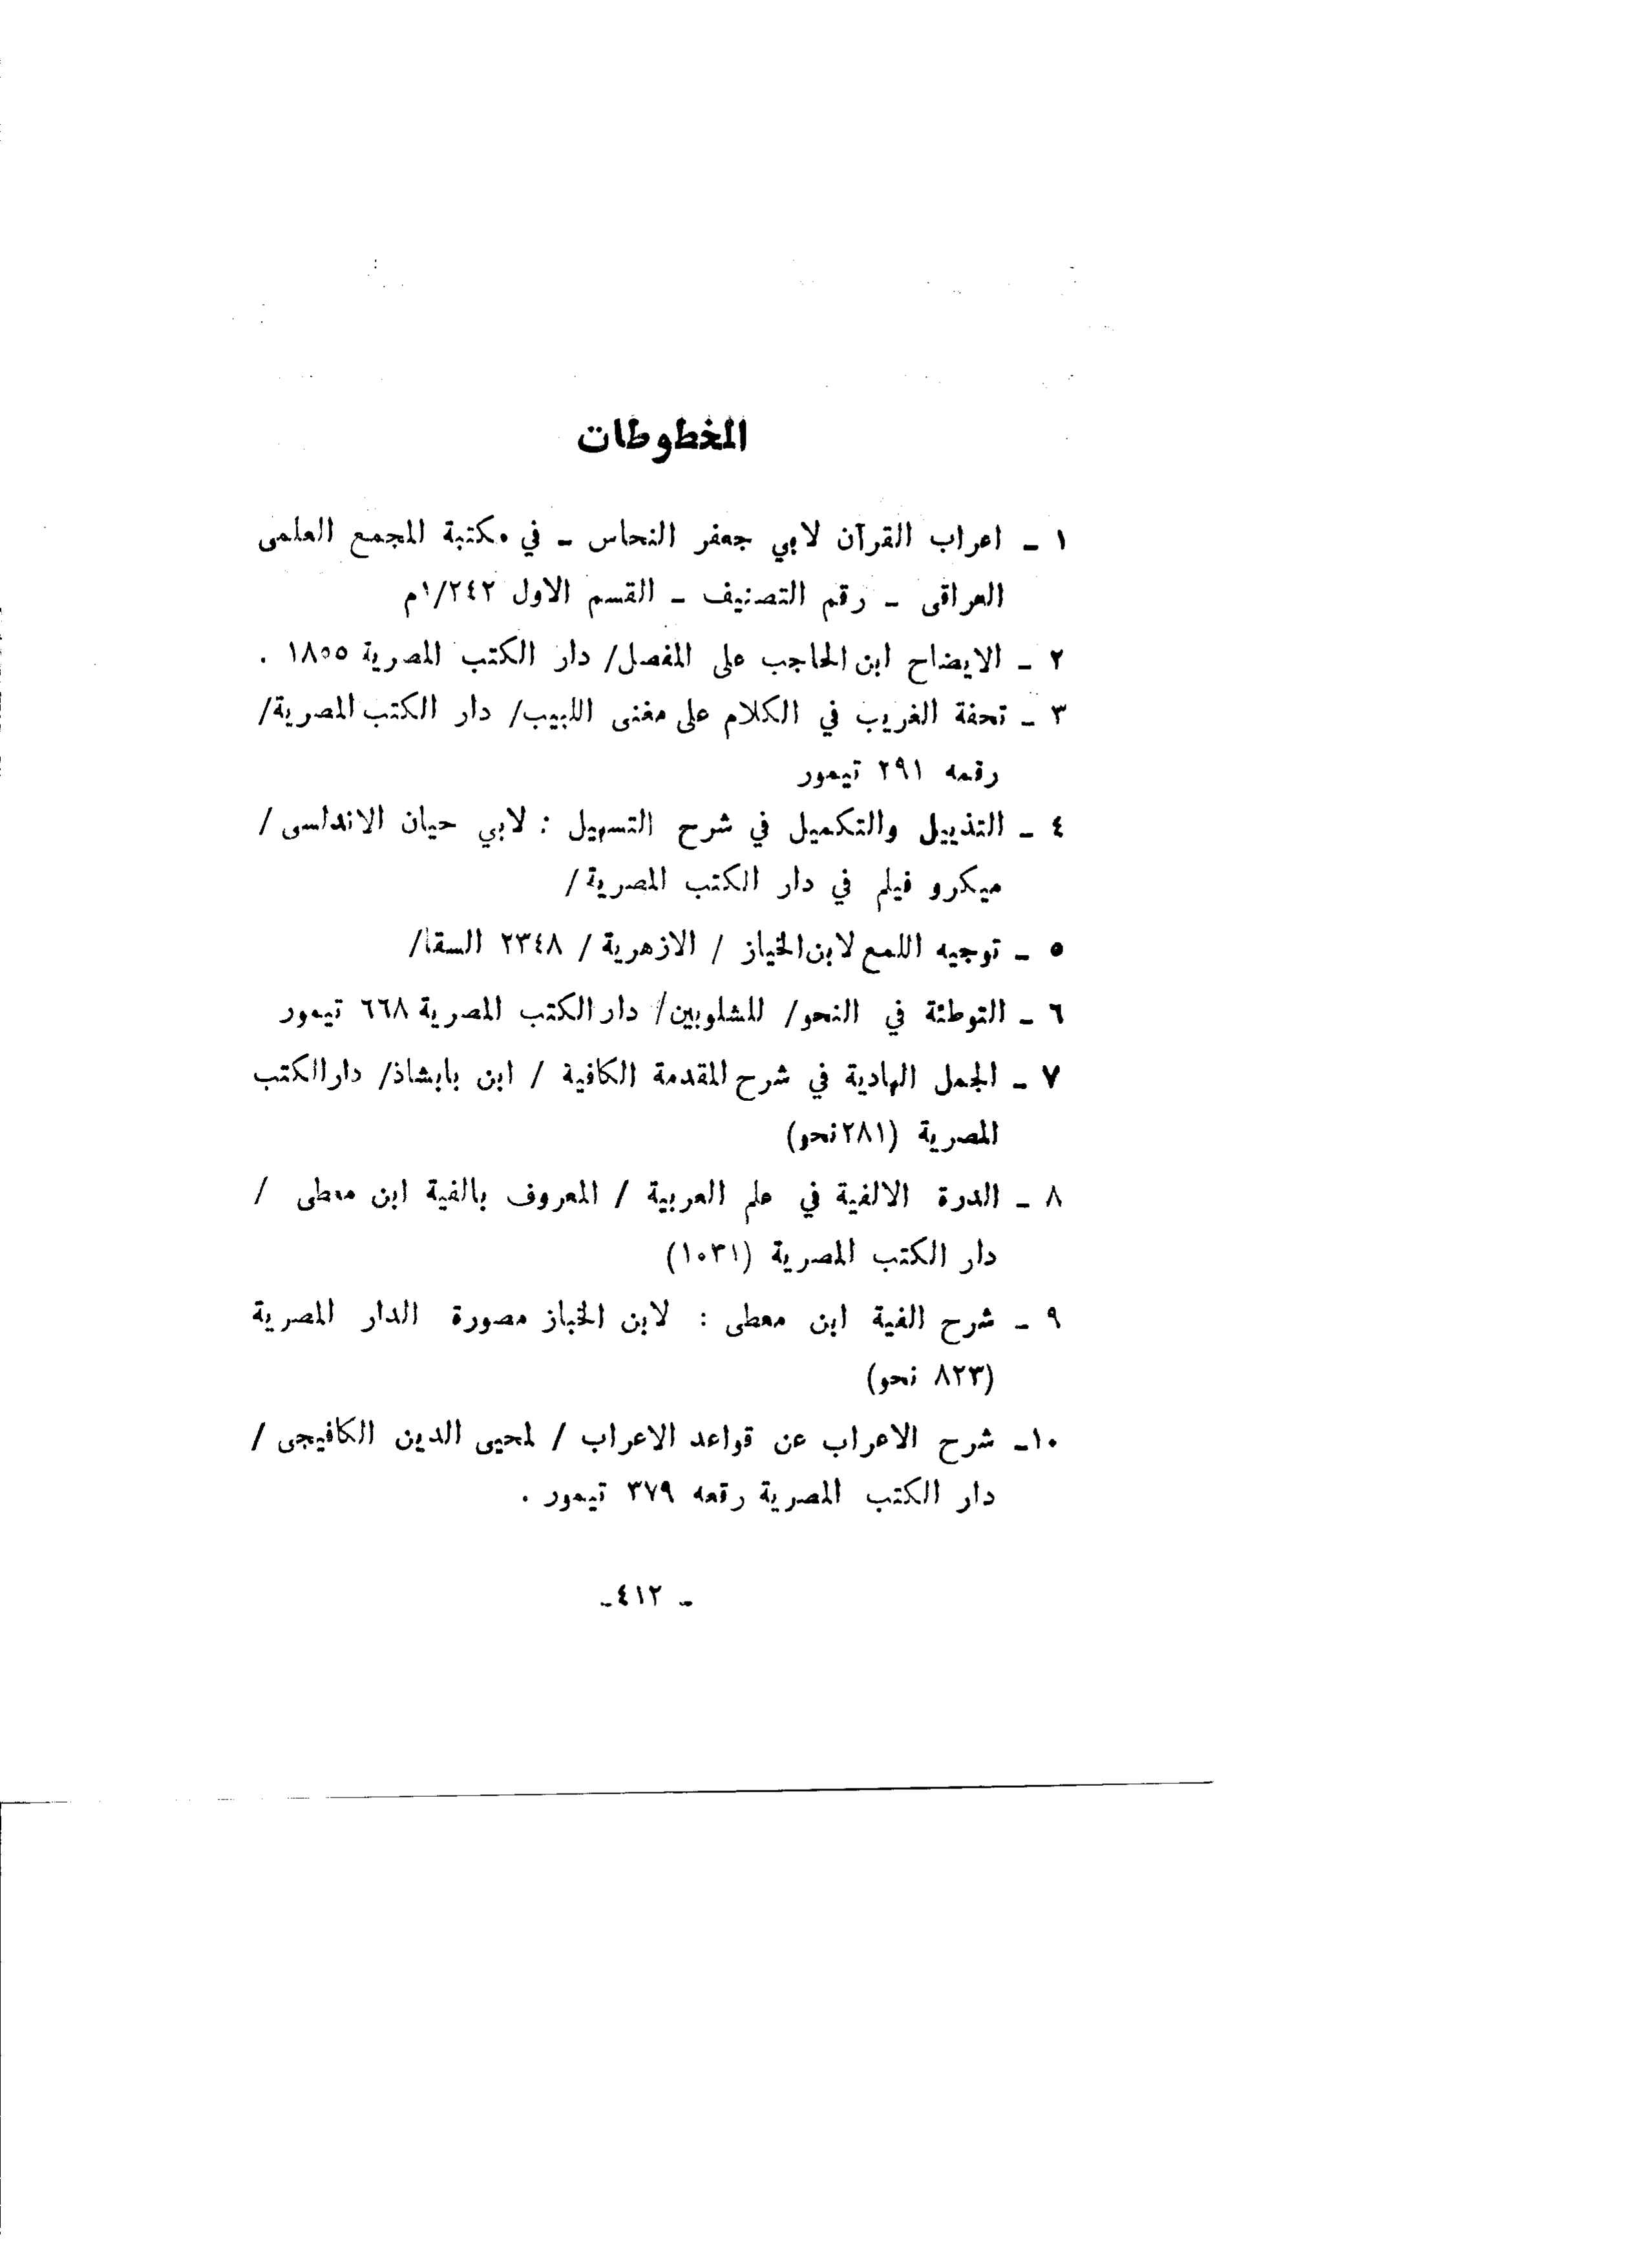 المخطوطات
١ ـ اعراب القرآن لابي جعفر النحاس ـ في مكتبة المجمع العلمى
العراقى ـ رقم التصنيف ـ القسم الاول ١/٢٤٢م
٢ ـ الايضاح ابن الحاجب على المفصل/ دار الكتب المصرية ١٨٥٥ .
٣ ـ تحفة الغريب في الكلام على مغنى اللبيب/ دار الكتب المصرية/
رقمه ٢٩١ تيمور
٤ ـ التذييل والتكميل في شرح التسهيل : لابي حيان الاندلسى /
ميكرو فيلم في دار الكتب المصرية/
٥ ـ توجيه اللمع لابن الخياز / الازهرية / ٢٣٤٨ السقا/
٦ ـ التوطئة في النحو/ للشلوبين/ دار الكتب المصرية ٦٦٨ تيمور
٧ ـ الجمل الهادية في شرح المقدمة الكافية / ابن بابشاذ/ دار الكتب
المصرية (٢٨١نحو)
٨ ـ الدرة الالفية في علم العربية / المعروف بالفية ابن معطى /
دار الكتب المصرية (١٠٣١)
٩ ـ شرح الفية ابن معطى : لابن الخباز مصورة الدار المصرية
(٨٢٣ نحو)
١٠ـ شرح الاعراب عن قواعد الاعراب / لمحيى الدين الكافيجى /
دار الكتب المصرية رقعه ٣٧٩ تيمور .
ـ ٤١٢ـ